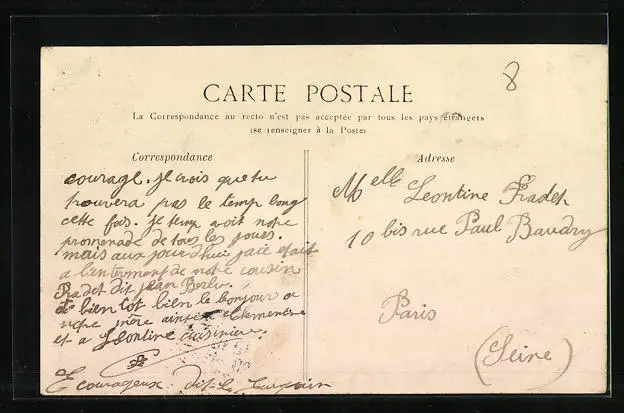 8
CARTE POSTALE
La Correspondance au recto n'est pas acceptée par tous les pays étrangers
(se renseigner à la Poste)
Correspondance
courage. Je crois que tu
trouvera pas le temp long
cette fois. Je temp notre
promenade de tous les jours.
mais aujourd'hui jaie etait
a l'enterment de notre cousin
Pradet dit jean
bien tot bien le bonjour a
notre mère ainsi Clementine
et a Leontine cuisinière.
courageux dit le
Adresse
Melle Leontine Pradet
10 bis rue Paul Baudry
Paris
(Seine)